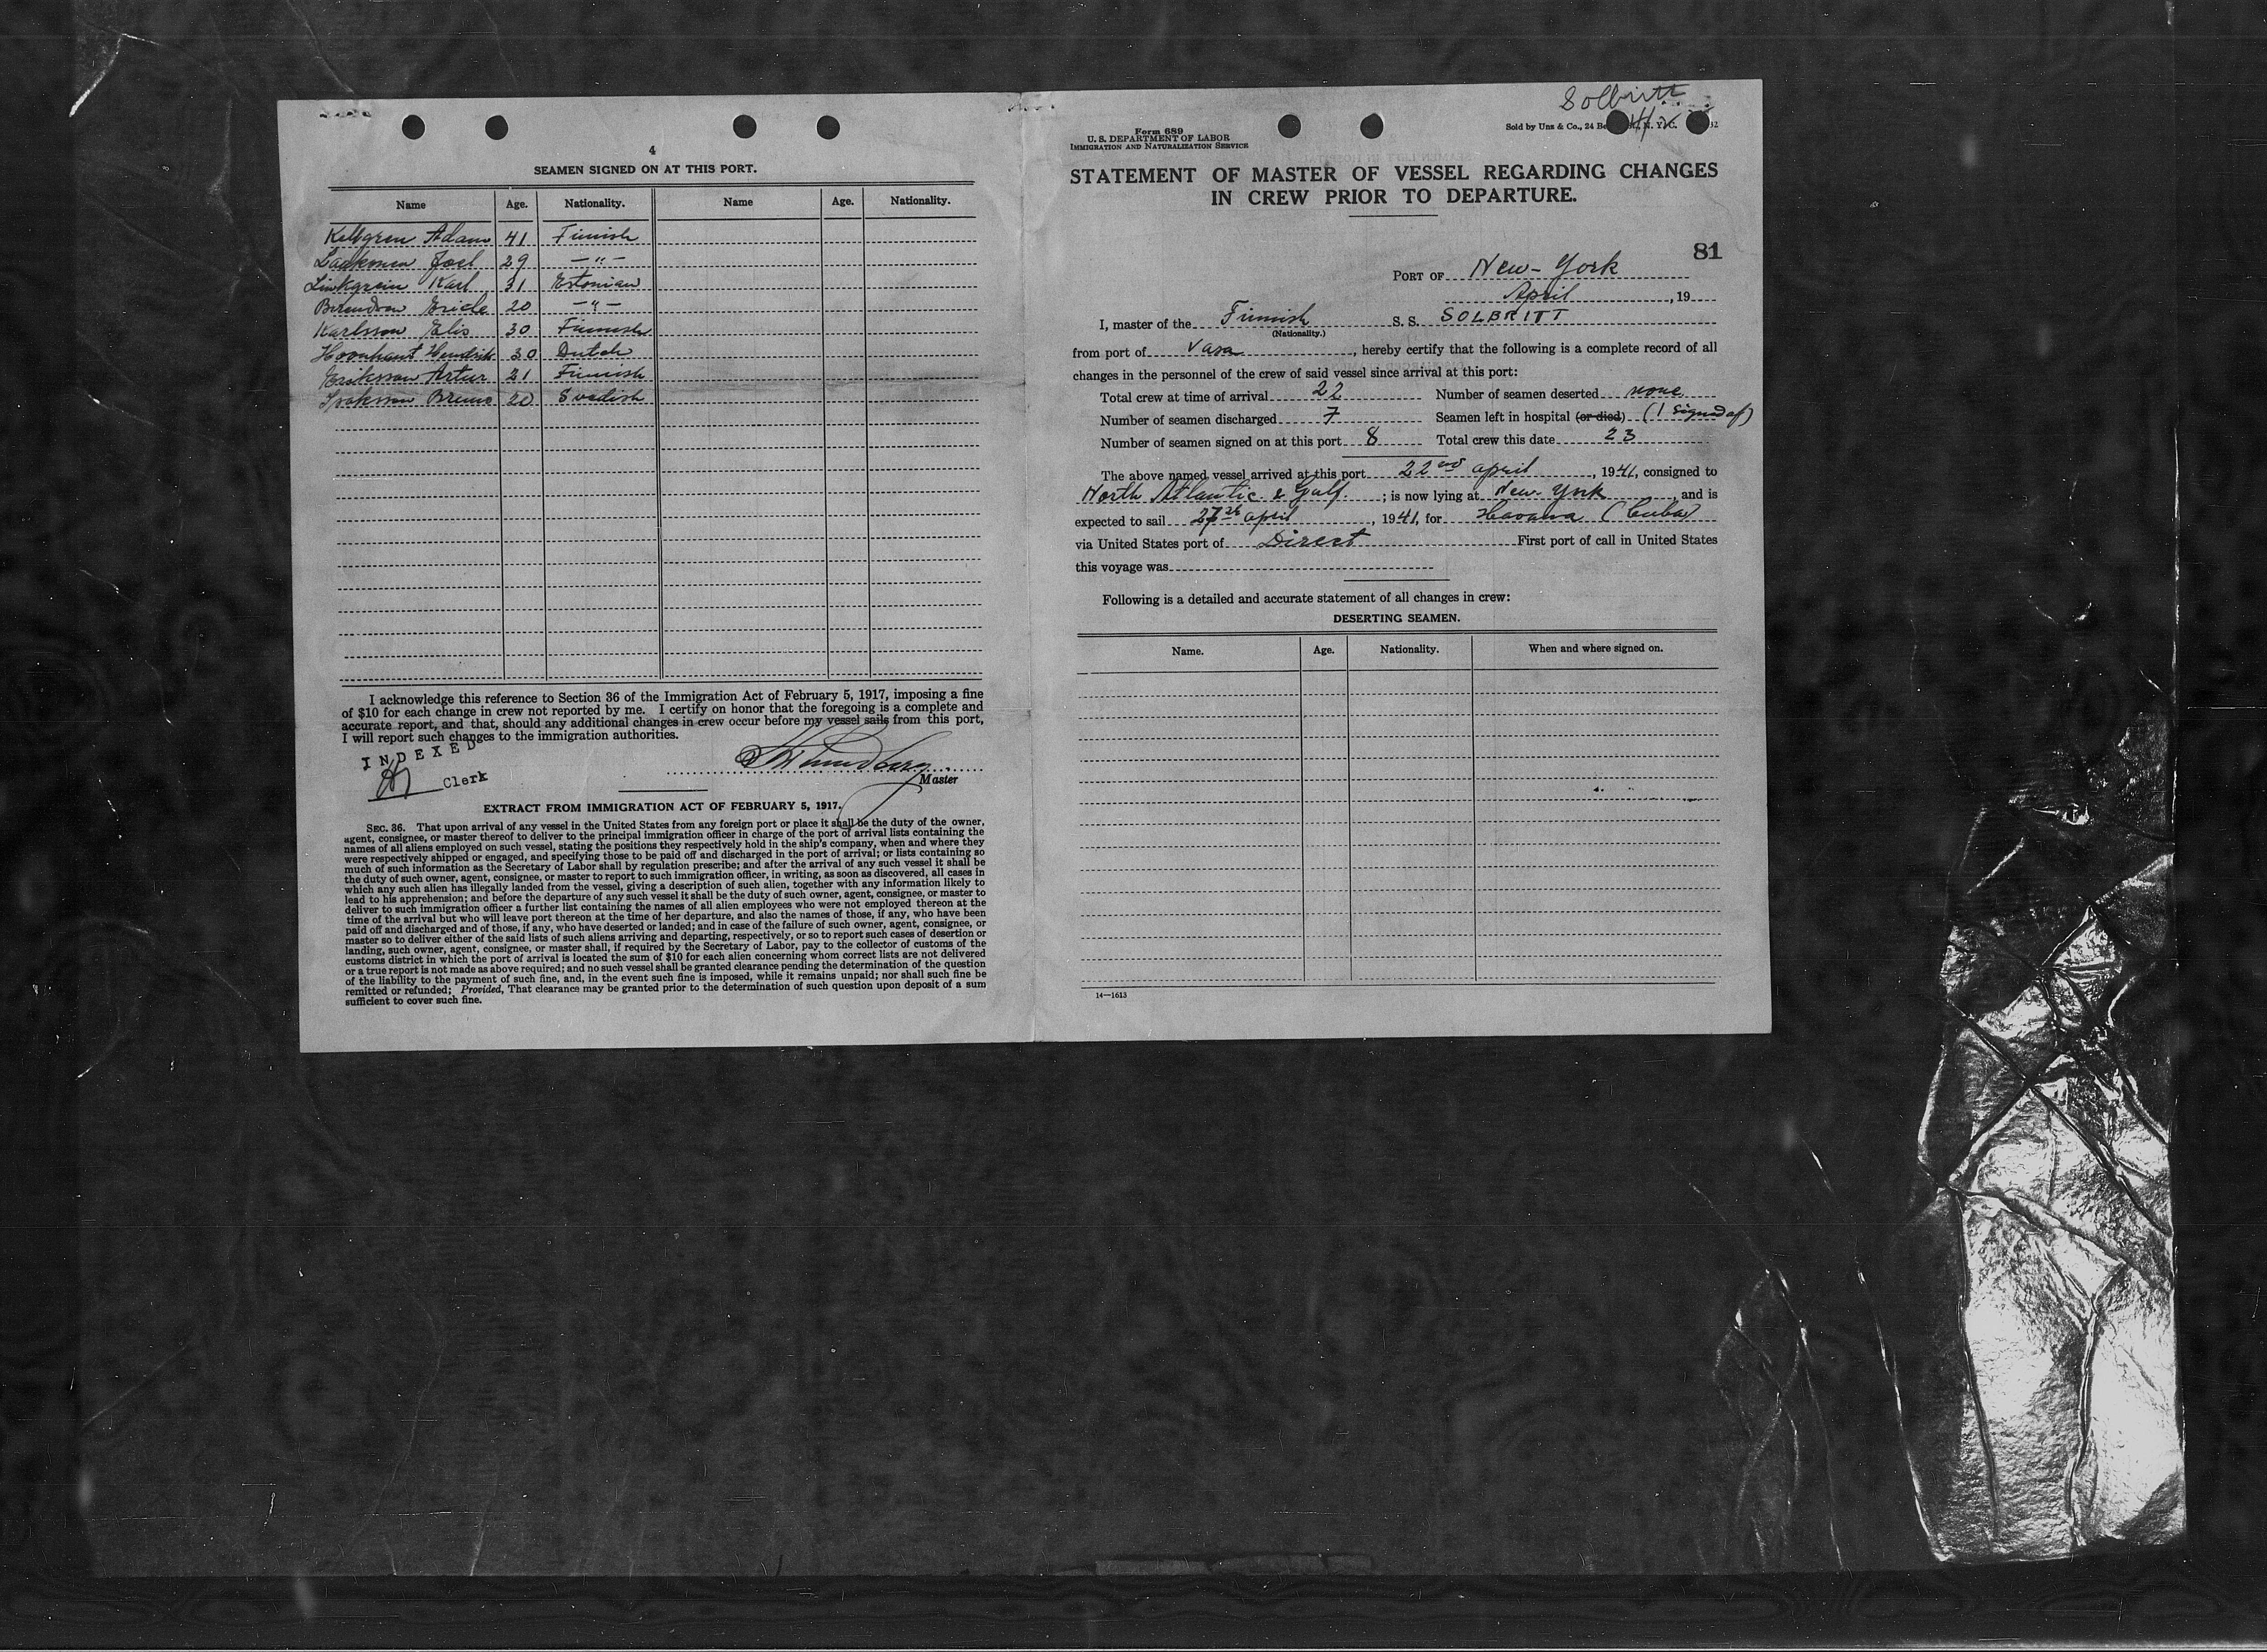 4
SEAMEN SIGNED ON AT THIS PORT.
Name Age. Nationality. Name Age. Nationality.
Kellgren Adam 41 Finnish
Laaksonen Joel 29 — " —
Karl 31 Estonian
20 — " —
Karlsson Elis 30 Finnish
Hendrik 30 Dutch
Eriksson Artur 21 Finnish
Bruno 20 Swedish
I acknowledge this reference to Section 36 of the Immigration Act of February 5, 1917, imposing a fine
of $10 for each change in crew not reported by me. I certify on honor that the foregoing is a complete and
accurate report, and that, should any additional changes in crew occur before my vessel sails from this port,
I will report such changes to the immigration authorities.
INDEXED
Clerk
Master
EXTRACT FROM IMMIGRATION ACT OF FEBRUARY 5, 1917.
SEC. 36. That upon arrival of any vessel in the United States from any foreign port or place it shall be the duty of the owner,
agent, consignee, or master thereof to deliver to the principal immigration officer in charge of the port of arrival lists containing the
names of all aliens employed on such vessel, stating the positions they respectively hold in the ship's company, when and where they
were respectively shipped or engaged, and specifying those to be paid off and discharged in the port of arrival; or lists containing so
much of such information as the Secretary of Labor shall by regulation prescribe; and after the arrival of any such vessel it shall be
the duty of such owner, agent, consignee, or master to report to such immigration officer, in writing, as soon as discovered, all cases in
which any such alien has illegally landed from the vessel, giving a description of such alien, together with any information likely to
lead to his apprehension; and before the departure of any such vessel it shall be the duty of such owner, agent, consignee, or master to
deliver to such immigration officer a further list containing the names of all alien employees who were not employed thereon at the
time of the arrival but who will leave port thereon at the time of her departure, and also the names of those, if any, who have been
paid off and discharged and of those, if any, who have deserted or landed; and in case of the failure of such owner, agent, consignee, or
master so to deliver either of the said lists of such aliens arriving and departing, respectively, or so to report such cases of desertion or
landing, such owner, agent, consignee, or master shall, if required by the Secretary of Labor, pay to the collector of customs of the
customs district in which the port of arrival is located the sum of $10 for each alien concerning whom correct lists are not delivered
or a true report is not made as above required; and no such vessel shall be granted clearance pending the determination of the question
of the liability to the payment of such fine, and, in the event such fine is imposed, while it remains unpaid; nor shall such fine be
remitted or refunded; Provided, That clearance may be granted prior to the determination of such question upon deposit of a sum
sufficient to cover such fine.
Solbritt
Form 689
U. S. DEPARTMENT OF LABOR
IMMIGRATION AND NATURALIZATION SERVICE
Sold by Unz & Co., 24
STATEMENT OF MASTER OF VESSEL REGARDING CHANGES
IN CREW PRIOR TO DEPARTURE.
81
PORT OF New-York
April, 19
I, master of the Finnish S. S. SOLBRITT
(Nationality.)
from port of Vasa, hereby certify that the following is a complete record of all
changes in the personnel of the crew of said vessel since arrival at this port:
Total crew at time of arrival 22 Number of seamen deserted none
Number of seamen discharged 7 Seamen left in hospital (or died) (1 signed of)
Number of seamen signed on at this port 8 Total crew this date 23
The above named vessel arrived at this port 22nd april, 1941, consigned to
North Atlantic & Gulf.; is now lying at New-York, and is
expected to sail 27th april, 1941, for Havana (Cuba)
via United States port of Direct First port of call in United States
this voyage was
Following is a detailed and accurate statement of all changes in crew:
DESERTING SEAMEN.
Name. Age. Nationality. When and where signed on.
14—1613